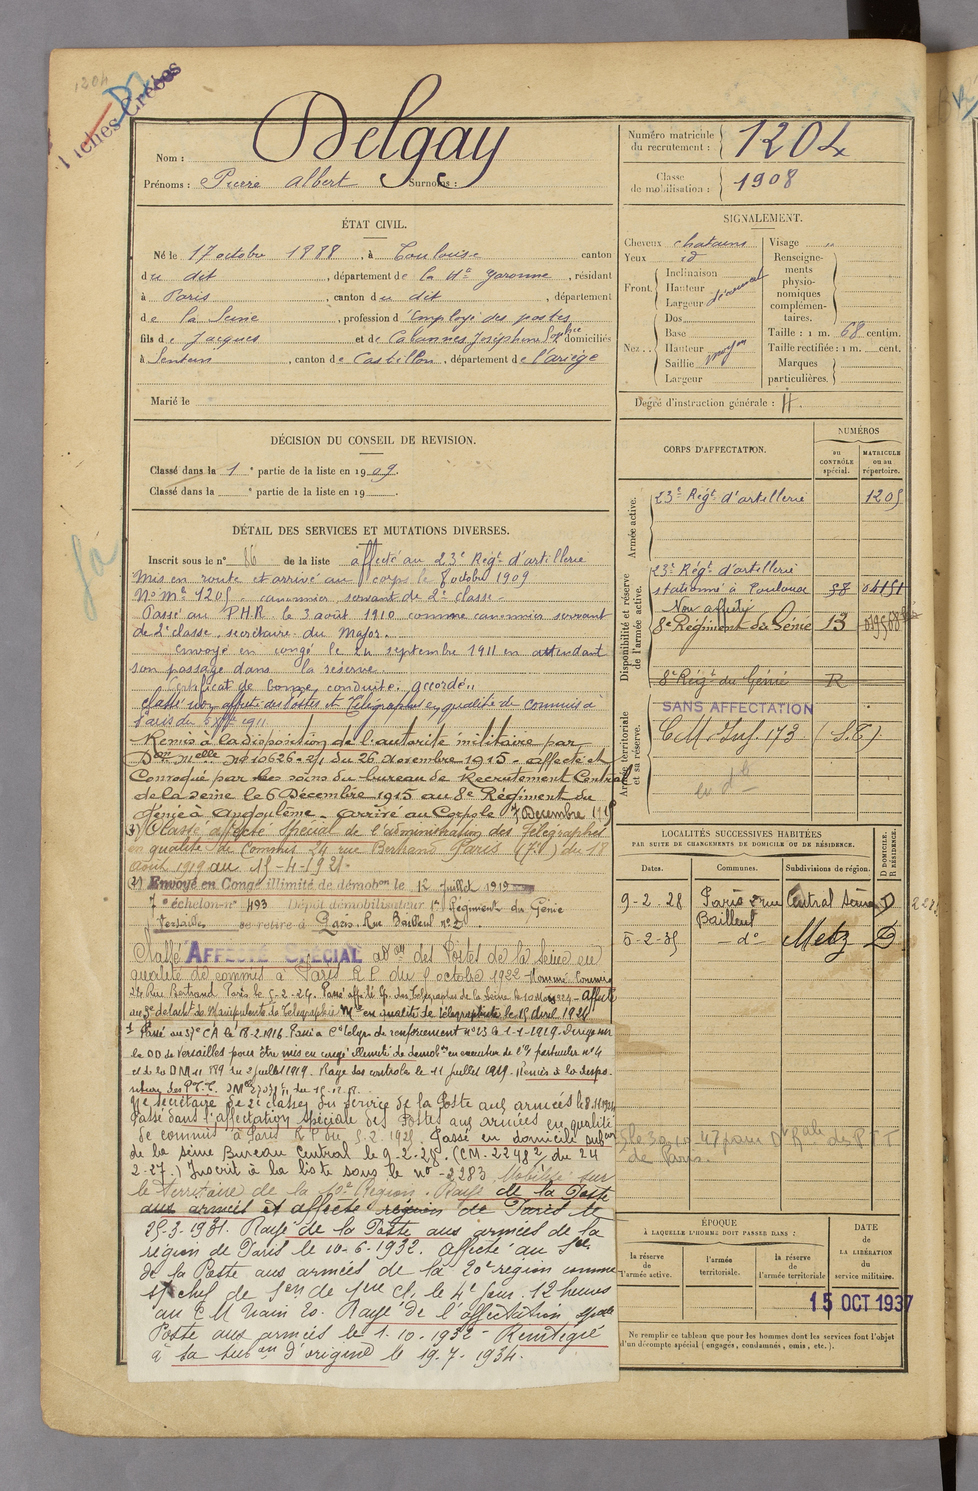 1204
Fiches Créées
Nom : Delgay
Prénoms : Pierre Albert Surnoms :
Numéro matricule du recrutement : 1204
Classe de mobilisation : 1908
ÉTAT CIVIL.
Né le 17 octobre 1888, à Toulouse canton
du dit, département de la Hte Garonne, résidant
à Paris, canton du dit, département
de la Seine, profession d'Employé des postes
fils de Jacques et de Cabannes Joséphine Sophie domiciliés
à Sentein, canton de Castillon, département de l'ariège
Marié le
SIGNALEMENT.
Cheveux chatains
Yeux id
Front. Inclinaison
Hauteur
Largeur
Nez. Dos
Base
Hauteur
Saillie moyen
Largeur
Visage
Renseignements physionomiques complémentaires.
Taille : 1 m. 68 centim.
Taille rectifiée : 1 m. cent.
Marques particulières.
Degré d'instruction générale :
DÉCISION DU CONSEIL DE REVISION.
Classé dans la 1e partie de la liste en 1909.
Classé dans la e partie de la liste en 19 .
DÉTAIL DES SERVICES ET MUTATIONS DIVERSES.
Inscrit sous le n° 86 de la liste affecté au 23e Régt d'artillerie
Mis en route et arrivé au corps le 8 octobre 1909
No Mle 1205. canonnier servant de 2e classe.
Passé au P.H.R. le 3 août 1910 comme canonnier servant
de 2e classe, secrétaire du Major.
Envoyé en congé le 24 septembre 1911 en attendant
son passage dans la réserve.
Certificat de bonne conduite accordé.
Classé non affecté des Postes et Télégraphes en qualité de commis à
Paris du 1911
Remis à la disposition de l'autorité militaire par
Don Melle No 10626-2/1 du 26 novembre 1915 - affecté et
Convoqué par les soins du bureau de Recrutement Central
de la Seine le 6 Décembre 1915 au 8e Régiment du
Génie à Angoulême - arrivé au Corps le 7 Décembre 1915
3) Classé affecté Spécial de l'administration des Télégraphes
en qualité de Commis 24 rue Bertrand Paris (7e) du 18
août 1919 au 15-4-1921.
2) Envoyé en Congé illimité de démobon le 12 Juillet 1919
7e échelon-n° 493 Dépôt démobilisateur 1er Régiment du Génie
Versailles se retire à Paris, Rue Bailleul n° 2
Classé AFFECTÉ SPÉCIAL des Postes de la Seine en
qualité de commis à Paris R.P. du octobre 1922 - Nommé Commis
24 Rue Bertrand Paris le 5-2-24. Passé aff. té Sp. des Télégraphes de la Seine le 10 Mars 1924 - Affecté
au détacht de Manipulants de Télégraphie Mre en qualité de télégraphiste le 15 Avril 1924
1° Passé au 37e CA le 18-2-1918. Passé à Cie Télégr. de renforcement n° 23 le 1-1-1919. Dirigé sur
le DD de Versailles pour être mis en congé illimité de démobon en exécution de l'I particulière n° 4
et de la DM 11 189 du 2 juillet 1919. Rayé des contrôles le 11 Juillet 1919. Remis à la dispo-
sition des P.T.T.
secrétaire de 2e classe du service de la Poste aux armées le 8.11.1924
Passé dans l'affectation spéciale des Postes aux armées en qualité
de commis à Paris R.P. du 5.2.1925. Passé en domicile
de la Seine Bureau Central le 9-2-28. (CM. 22482 du 24
2-27.) Inscrit à la liste sous le n° 2283 Mobilisé sur
le territoire de la 10e Région. Rayé de la Poste
aux armées et affecté région de Paris le
25-3-1931. Rayé de la Poste aux armées de la
région de Paris le 10-6-1932. affecté au Sce
de la Poste aux armées de la 20e région comme
s/ chef de Son de 1ere cl. le 4e jour 12 heures
au C M Train 20. Rayé de l'affectation spale
Poste aux armées le 1.10.1932 - Réintégré
à sa subon d'origine le 19.7.1934.
CORPS D'AFFECTATION.
NUMÉROS
DU CONTRÔLE spécial.
MATRICULE ou au répertoire.
Armée active.
23e Régt d'artillerie 1205
Disponibilité et réserve de l'armée active.
23e Régt d'artillerie
stationné à Toulouse 58 04151
Non affecté
8e Régiment du Génie 13
8e Régt du Génie R
Armée territoriale et sa réserve.
SANS AFFECTATION
C.M. Inf. 173 (S.E)
LOCALITÉS SUCCESSIVES HABITÉES
PAR SUITE DE CHANGEMENTS DE DOMICILE OU DE RÉSIDENCE.
Dates. Communes. Subdivisions de région. D DOMICILE. R RÉSIDENCE.
9-2-28 Paris 2 rue Bailleul Central Seine D
5-2-35 - do - Metz D
de Paris.
ÉPOQUE
À LAQUELLE L'HOMME DOIT PASSER DANS :
la réserve de l'armée active.
l'armée territoriale.
la réserve de l'armée territoriale
DATE de LA LIBÉRATION du service militaire.
15 OCT 1937
Ne remplir ce tableau que pour les hommes dont les services font l'objet
d'un décompte spécial (engagés, condamnés, omis, etc.).